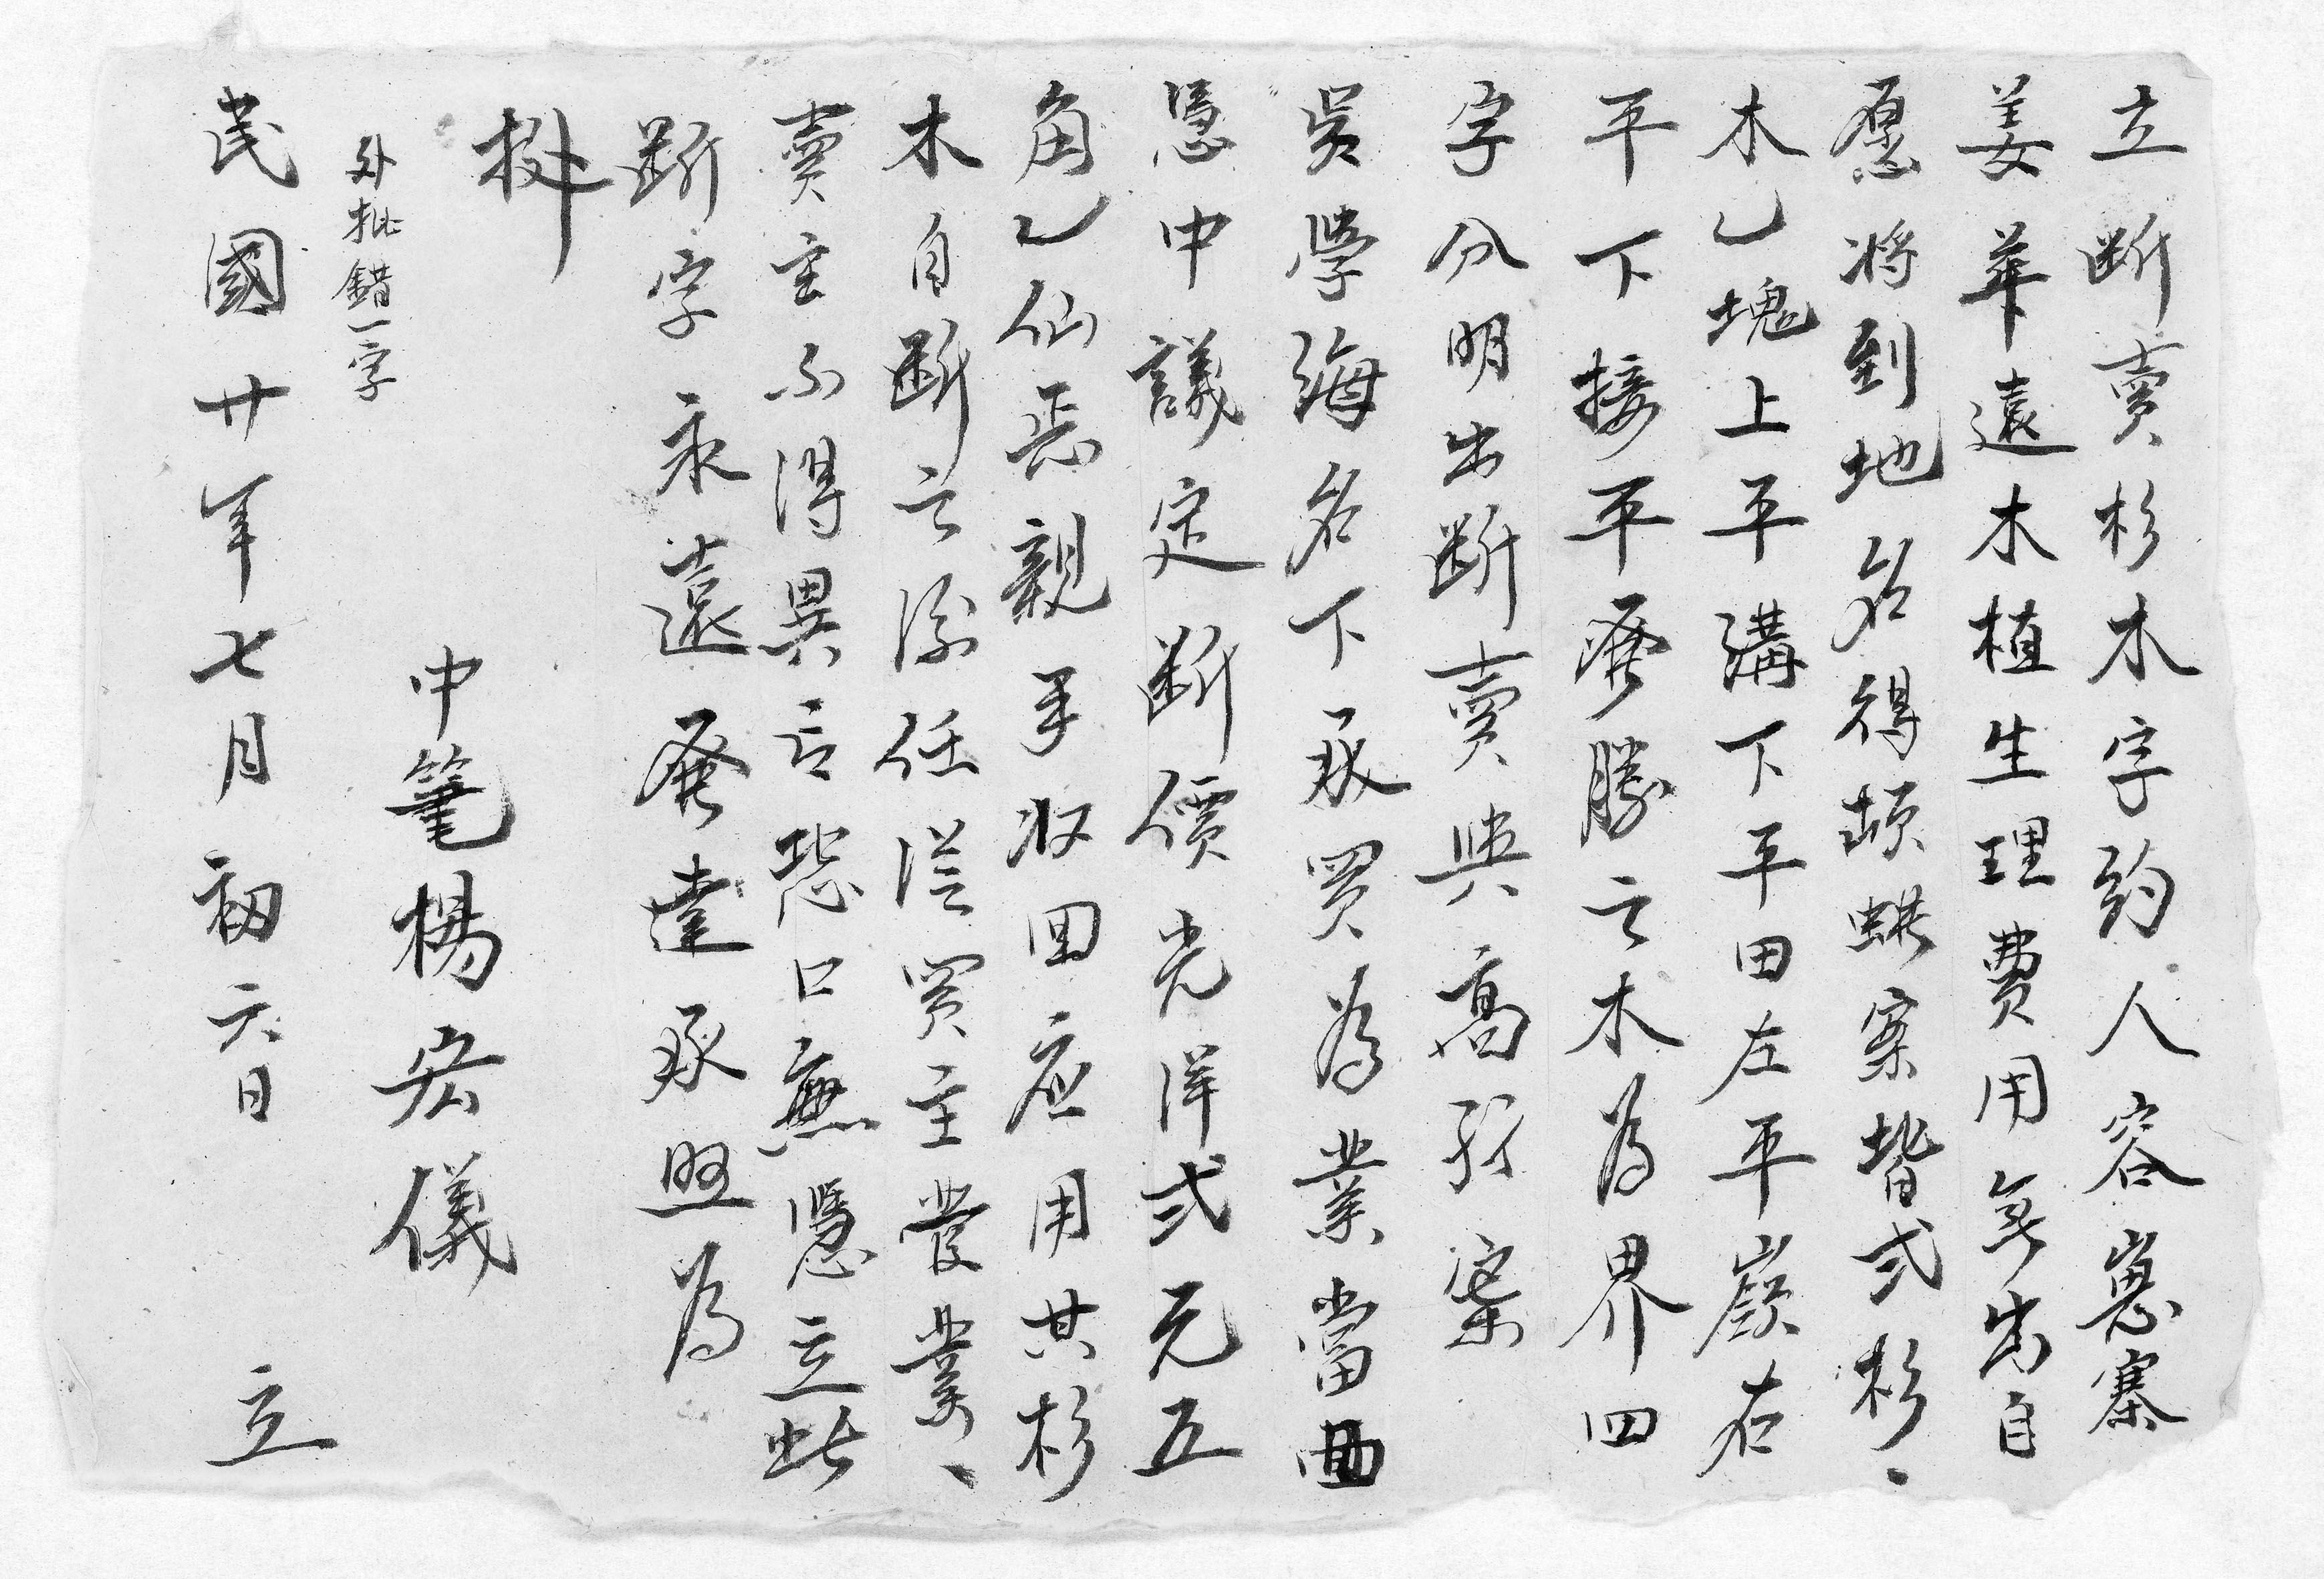 立断賣杉木字約人容嵬寨
姜華遠木植生理費用無出自
愿將到地名得頑蜞寨皆弍杉、
木乙塊上平溝下平田左平嶺右
平下接平發勝之木為界四
字分明出断賣與高孖寨
吳學海名下承買為業當
憑中議定断價光洋弍元五
角乙仙恁親手收回應用其杉
木自断之後任從買主管業、
賣主不得異言恐口無憑立此
断字永遠發達承照為
據
外批錯一字
中筆楊宏儀
民國廿年七月初六日 立